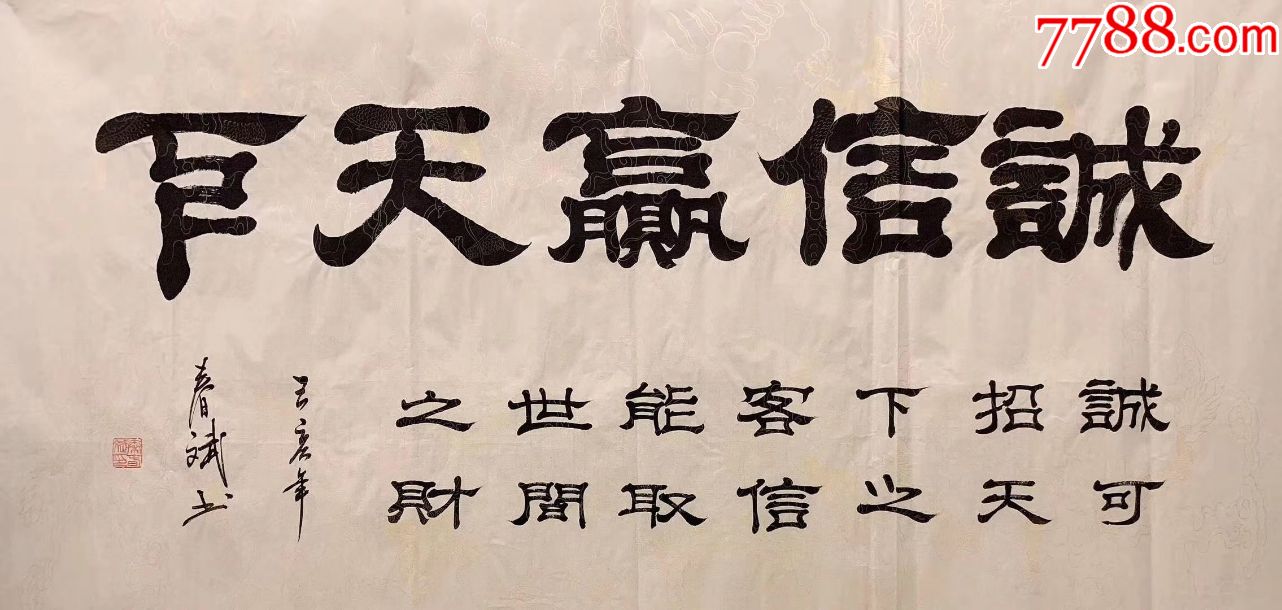 7788.com
誠信贏天下
誠可
招天
下之
客信
能取
世間
之財
己亥年
春斌书